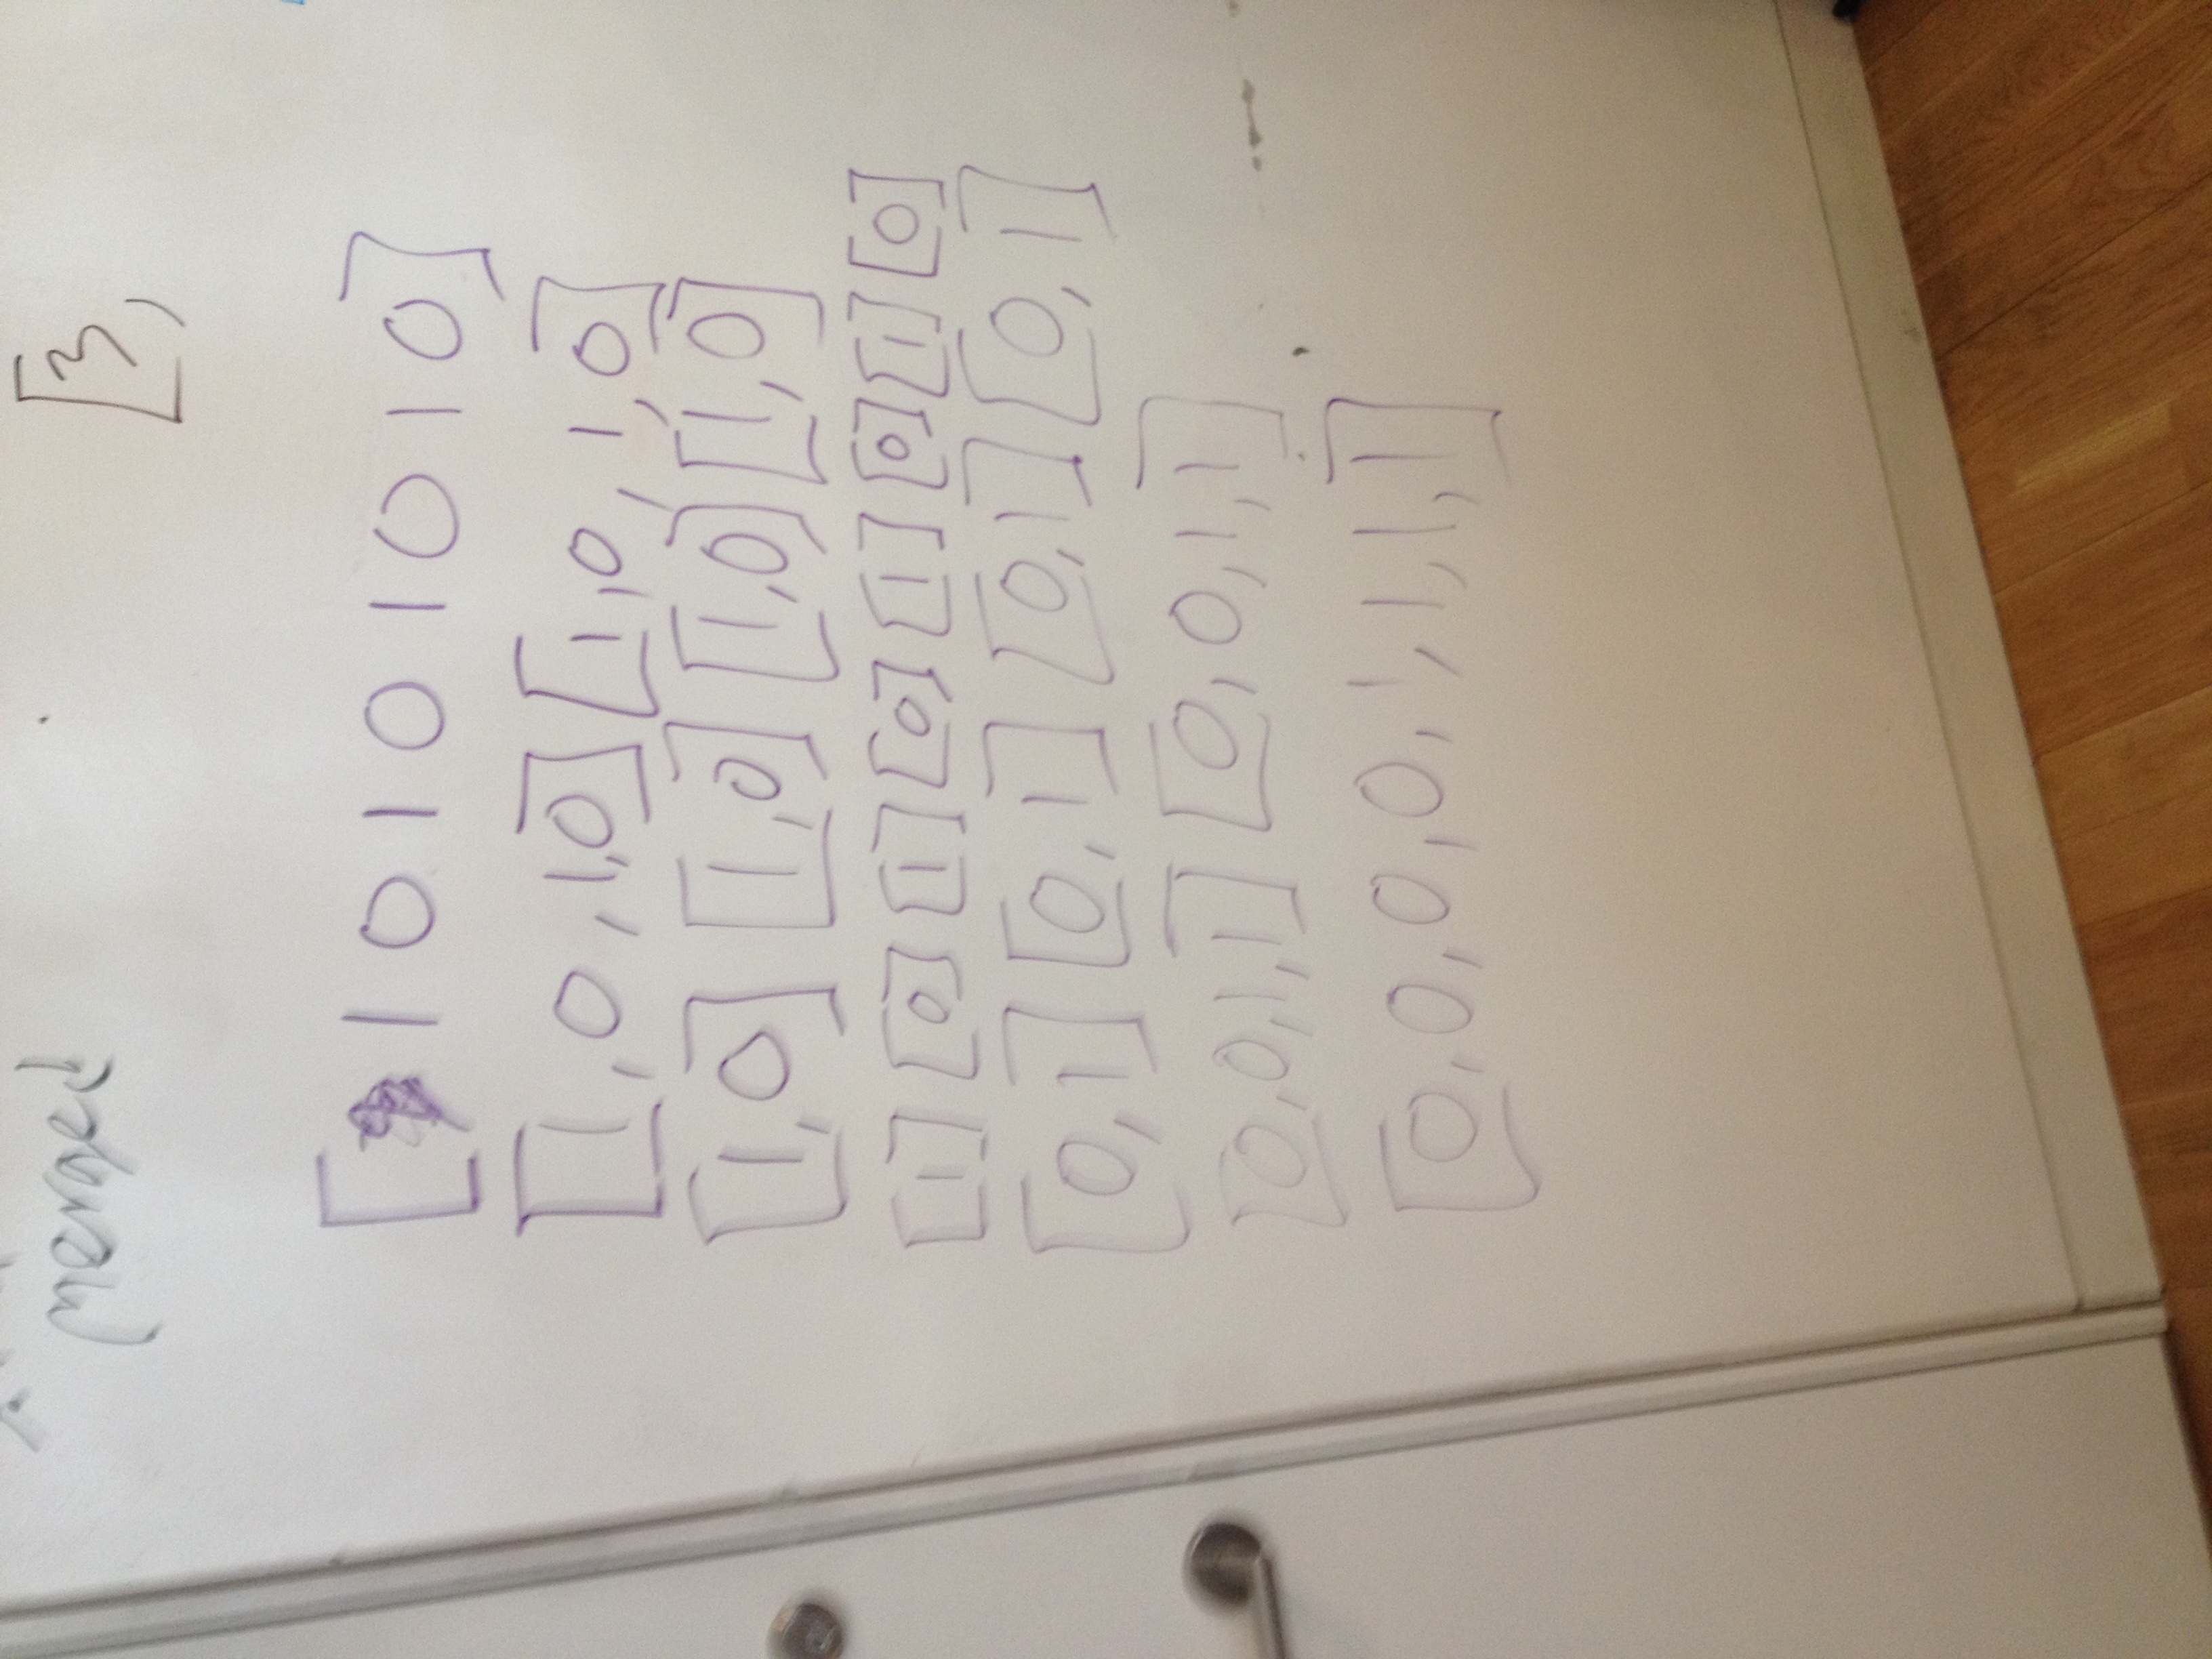 merged
[3,
[ 1 0 1 0 1 0 1 0]
[1,0,1,0] [1,0,1,0]
[1,0] [1,0] [1,0] [1,0]
[1] [0] [1] [0] [1] [0] [1] [0]
[0,1] [0,1] [0,1] [0,1]
[0,0,1,1] [0,0,1,1]
[0,0,0,0,1,1,1,1]